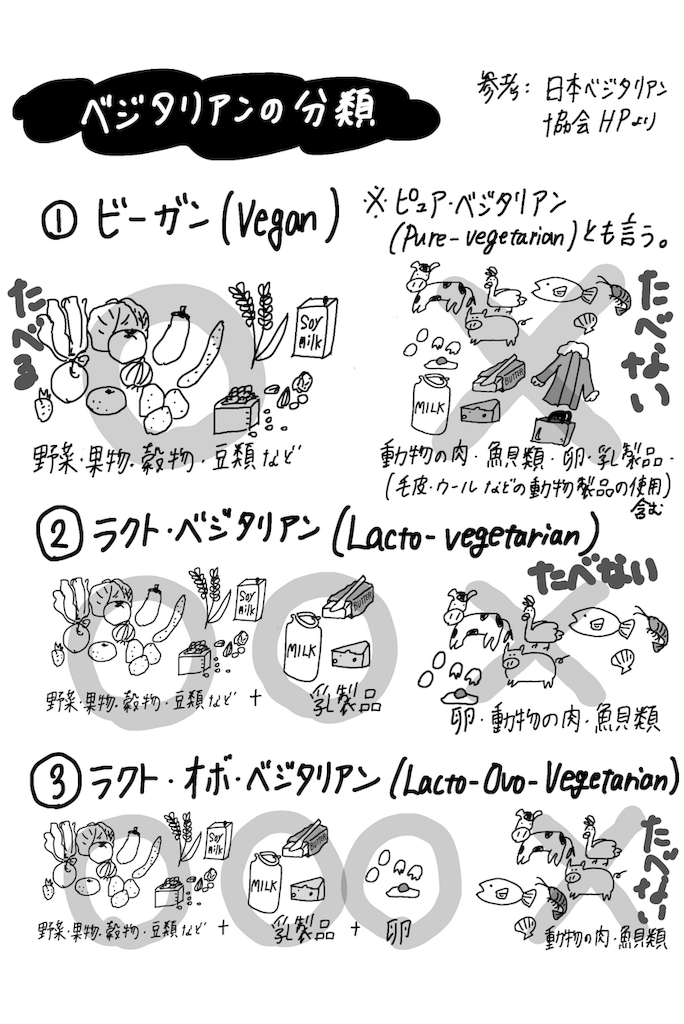 ベジタリアンの分類
参考: 日本ベジタリアン
協会HPより
① ビーガン(Vegan)
※ピュア・ベジタリアン
(Pure-vegetarian)とも言う。
たべる
Soy Milk
野菜・果物・穀物・豆類など
たべない
MILK
BUTTER
動物の肉・魚貝類・卵・乳製品・
(毛皮・ウールなどの動物製品の使用)
含む
② ラクト・ベジタリアン(Lacto-vegetarian)
Soy Milk
野菜・果物・穀物・豆類など +
MILK
BUTTER
乳製品
たべない
卵・動物の肉・魚貝類
③ ラクト・オボ・ベジタリアン(Lacto-Ovo-Vegetarian)
Soy Milk
野菜・果物・穀物・豆類など +
MILK
BUTTER
乳製品 + 卵
たべない
動物の肉・魚貝類